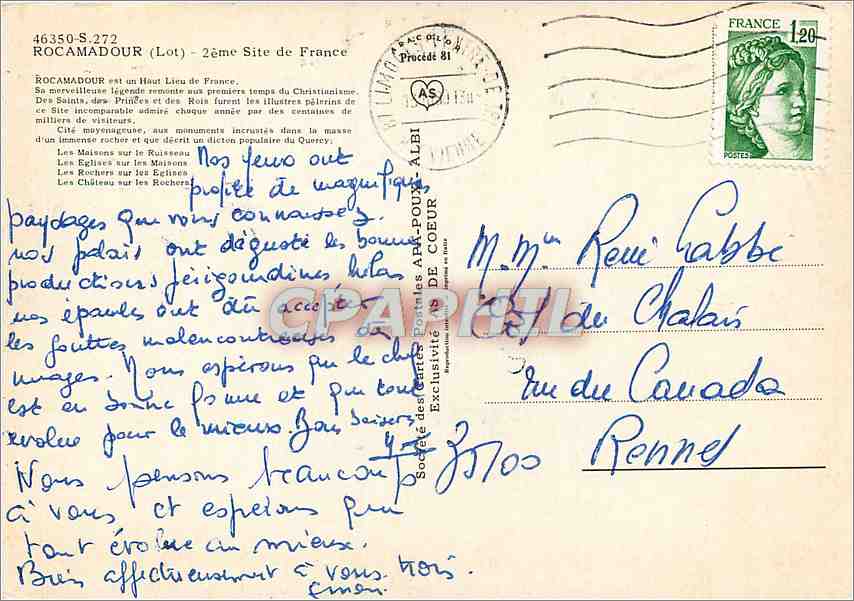 46350-S.272
ROCAMADOUR (Lot) - 2ème Site de France
ROCAMADOUR est un Haut Lieu de France.
Sa merveilleuse légende remonte aux premiers temps du Christianisme.
Des Saints, des Princes et des Rois furent les illustres pèlerins de
ce Site incomparable admiré chaque année par des centaines de
milliers de visiteurs.
Cité moyenageuse, aux monuments incrustés dans la masse
d'un immense rocher et que décrit un dicton populaire du Quercy:
Les Maisons sur le Ruisseau
Les Eglises sur les Maisons
Les Rochers sur les Eglises
Les Château sur les Rochers
Nos yeux ont
profité de magnifiques
paysages que vous connaissez.
nos palais ont dégusté les bonnes
productions périgourdines hélas
nos épaules ont dû accepter
les gouttes malencontreuses des
nuages. Nous espérons que le chef
est en bonne forme et que tout
évolue pour le mieux. Bons baisers
Nous pensons beaucoup
à vous et espérons que
tout évolue au mieux.
Bien affectueusement à vous trois.
APACOLOR
Procédé 81
AS
Société des Cartes Postales APA-POUX - ALBI
Exclusivité AS DE COEUR
Reproduction interdite Imprimé en France
FRANCE
1,20
POSTES
M. Mme René Labbé
du Chalais
rue du Canada
35100 Rennes
CPAPHIL